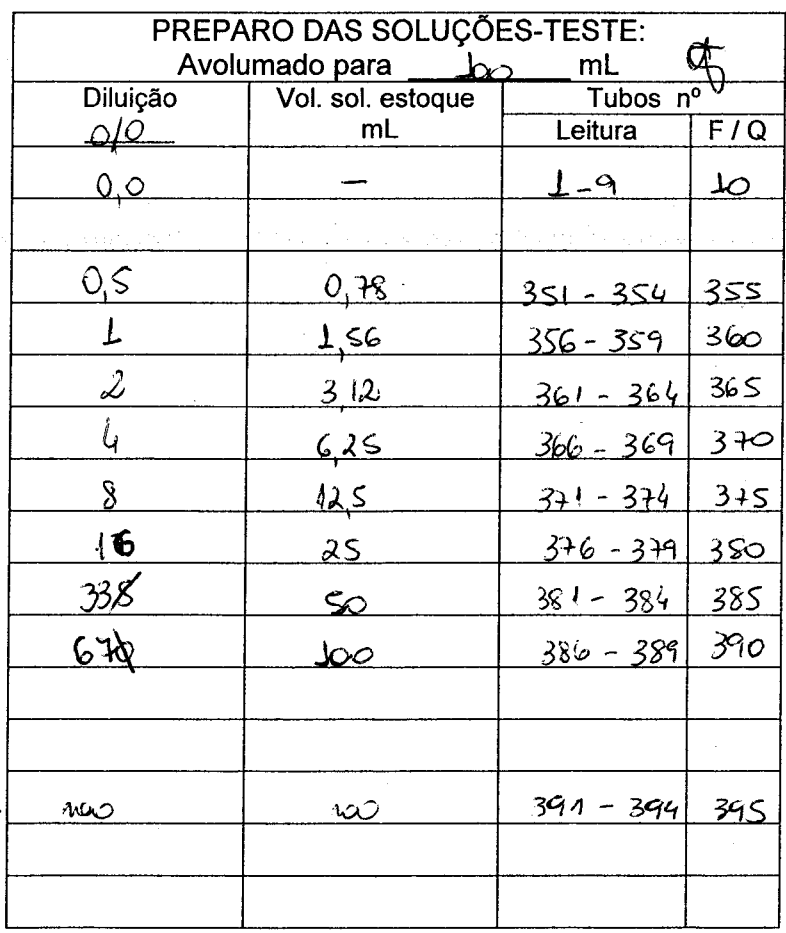 PREPARO DAS SOLUÇÕES-TESTE:
Avolumado para 100 mL
Diluição Vol. sol. estoque Tubos nº
0/0 mL Leitura F / Q
0,0 — 1-9 10
0,5 0,78 351 - 354 355
1 1,56 356 - 359 360
2 3,12 361 - 364 365
4 6,25 366 - 369 370
8 12,5 371 - 374 375
16 25 376 - 379 380
33 50 381 - 384 385
67 100 386 - 389 390
100 391 - 394 395